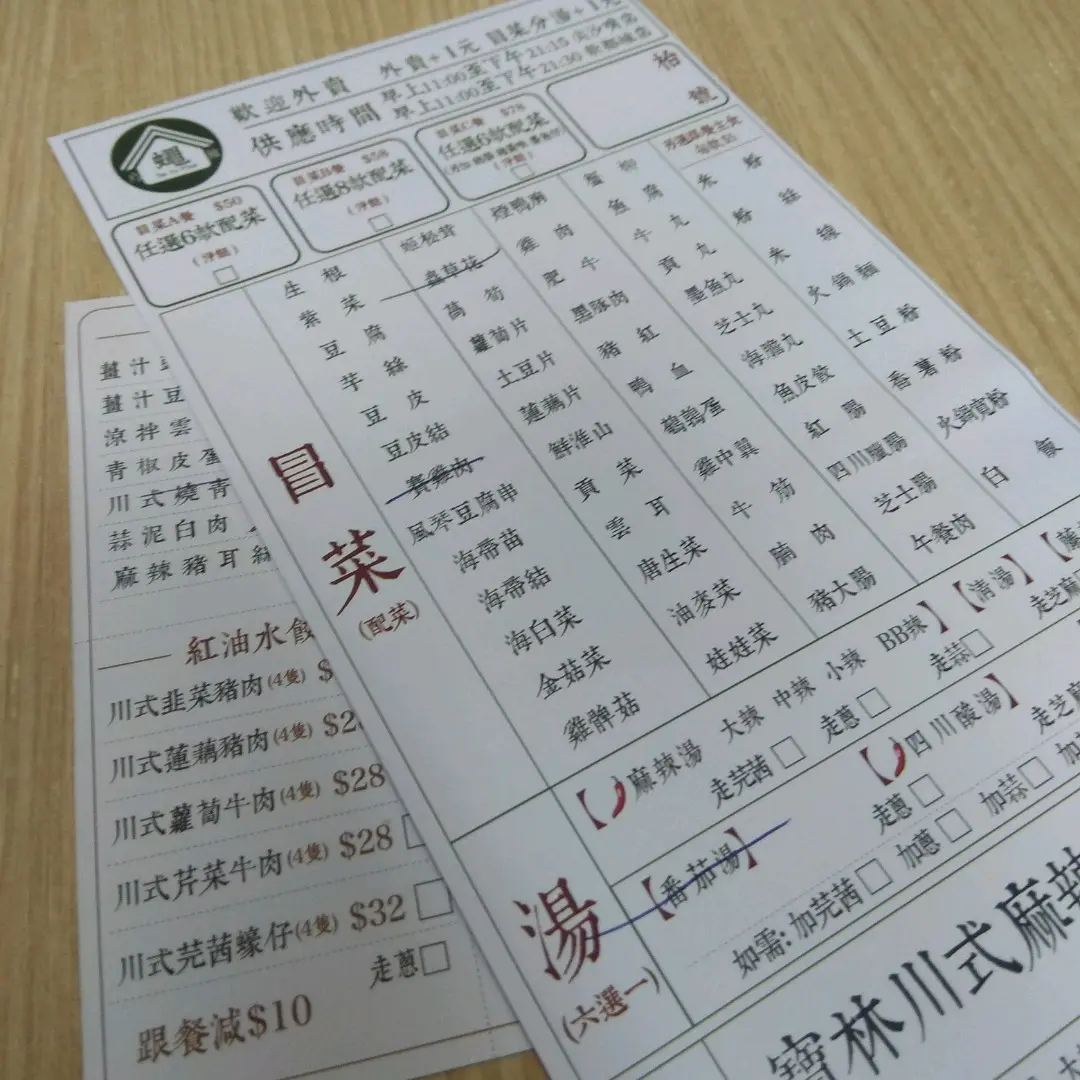 歡迎外賣 外賣+1元 冒菜分湯+1元
供應時間 早上11:00至下午21:15 尖沙嘴店
早上11:00至下午21:30 新都城店
冒菜A餐 $50
任選6款配菜
(淨餸)
冒菜B餐 $58
任選8款配菜
(淨餸)
冒菜C餐 $78
任選6款配菜
(淨餸)
枱
號
冒菜
(配菜)
生根
紫菜
豆腐
芋絲
豆皮
豆皮結
寶雞肉
風琴豆腐串
海帶苗
海帶結
海白菜
金菇菜
雞髀菇
姬松茸
蟲草花
萵筍
蘿蔔片
土豆片
蓮藕片
鮮淮山
貢菜
雲耳
唐生菜
油麥菜
娃娃菜
煙鴨胸
雞肉
肥牛
黑豚肉
豬紅
鴨血
鵪鶉蛋
雞中翼
牛筋
腩肉
豬大腸
蟹柳
魚腐
牛丸
貢丸
墨魚丸
芝士丸
海膽丸
魚皮餃
紅腸
四川臘腸
芝士腸
午餐肉
米粉
粉絲
米線
火鍋麵
土豆粉
番薯粉
火鍋寬粉
白飯
湯
(六選一)
【麻辣湯 大辣 中辣 小辣 BB辣】【清湯】
走芫茜 走蔥 走蒜 走芝麻
【番茄湯】
【四川酸湯】
走蔥 走芝麻
如需: 加芫茜 加蔥 加蒜
寶林川式麻辣
薑汁
薑汁豆
涼拌雲
青椒皮蛋
川式燒青
蒜泥白肉
麻辣豬耳絲
紅油水餃
川式韭菜豬肉(4隻) $
川式蓮藕豬肉(4隻) $2
川式蘿蔔牛肉(4隻) $28
川式芹菜牛肉(4隻) $28
川式芫茜蠔仔(4隻) $32
走蔥
跟餐減$10